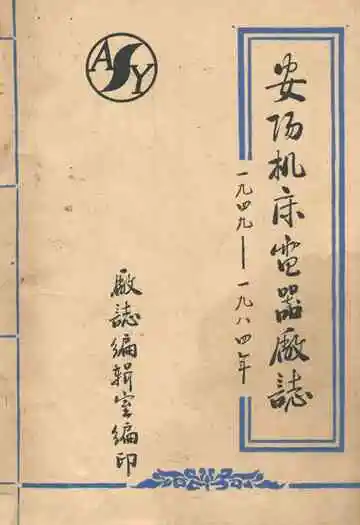 安阳机床電器廠誌
一九四九—一九八四年
廠誌编辑室编印
ASY